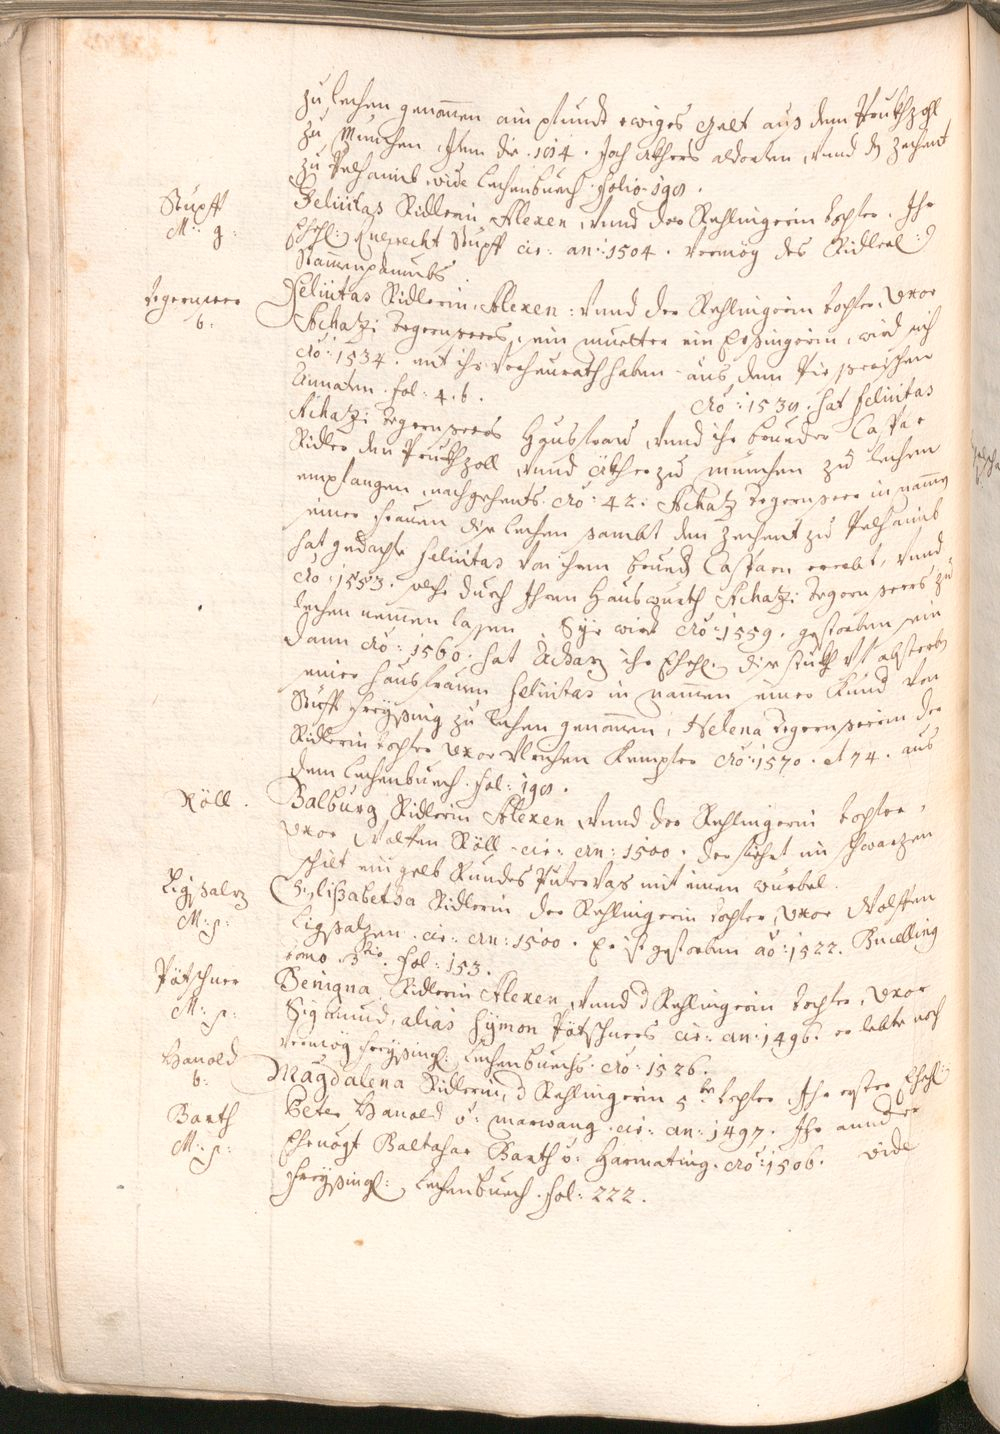 zu lechen genomen ain pfundt ewiges gelt aus dem Pruckhzohl
zu München, Item die 10¼ Joch Akhers aldorten, vnd den Zechent
zu Pelhaimb, vide Lechenbuech folio 198.
Stupff
M: g:
Felicitas Ridlerin, Alexen, vnd der Rehlingerin tochter. Ihr
Ehehl: Ruprecht Stupff cir: an: 1504. vermög des Ridleral:
Stammenpaumbs
Tegernseer
b:
Felicitas Ridlerin, Alexen: vnd der Rehlingerin tochter, Vxor
Achazj Tegernseers, ein muetter ein Essingerin, wird sich
Ao: 1534. mit ihr verheurath haben aus dem
Annaten fol: 4. b. Ao: 1539. hat Felicitas
Achazj Tegernseers Hausfraw vnd ihr brueder Caspar
Ridler den Pruckhzoll vnd Äkher zu münchen zu lechen
empfangen, nachgehents Ao: 42: Achatz Tegernseer in namen
seiner frauen die lechen sambt den Zechent zu Pelhaimb
hat gedachte Felicitas von ihrem brued: Casparn ererbt, vnd
Ao: 1553. solche durch Ihren Hauswürth Achazj Tegernseers zu
lechen nemmen lassen. Sye wird Ao: 1559. gestorben sein
dann Ao: 1560. hat Achaz ihr Ehehl: dise stukh vf absterben
seiner hausfrauen Felicitas in nammen seiner Kind von
Stüfft Freysing zu lechen genommen, Helena Tegernseerin der
Ridlerin tochter Vxor Vlrichen Kempter Ao: 1570. et 74. aus
dem Lechenbuech fol: 198.
Röll.
Balburg Ridlerin Alexen, vnd der Rehlingerin tochter,
Vxor Wolffen Röll cir: an: 1500. der fiehrt im schwarzen
schilt ein gelb Rundes Putervas mit einen würbel.
Ligsalz
M: p:
Elisabetha Ridlerin der Rehlingerin tochter, Vxor Wolffen
Ligsalzen. cir: an: 1500. Er ist gestorben ao: 1522. Bucelling
tomo 3tio. fol: 153.
Pötschner
M: p:
Benigna Ridlerin Alexen, vnd d Rehlingerin tochter, Vxor
Sigmund, alias Symon Pötschners cir: an: 1496. er lebte noch
vermög freysingl: Lechenbuechs Ao: 1526.
Hanold
b:
Magdalena Ridlerin, d Rehlingerin 5te tochter. Ihr erster Ehehl:
Peter Hanold v: marwang. cir: an: 1497. Ihr annder
Barth
M: p:
Ehevogt Baltahsar Barth v: Harmating. Ao: 1506. vide
freysingl: Lechenbuech. fol: 222.